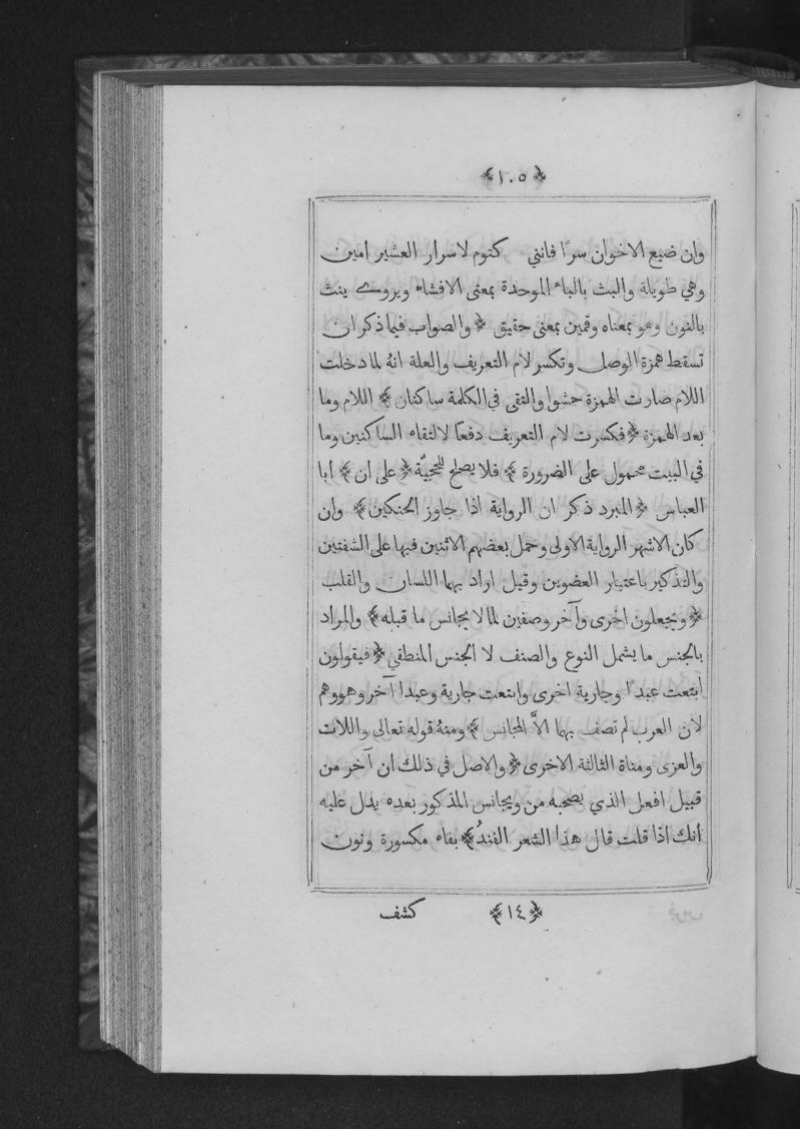 ﴿١٠٥﴾
وان ضيع الاخوان سرًا فانني كتوم لاسرار العشير امين
وهي طويلة والبث بالباء الموحدة بمعنى الافشاء ويروى ينث
بالنون وهو بمعناه وقمين بمعنى حقيق ﴿والصواب فيما ذكر ان
تسقط همزة الوصل وتكسر لام التعريف والعلة انهُ لما دخلت
اللام صارت الهمزة حشوا والتقى في الكلمة ساكنان﴾ اللام وما
بعد الهمزة ﴿فكسرت لام التعريف دفعًا لالتقاء الساكنين وما
في البيت محمول على الضرورة﴾ فلا يصلح للحجيَّة ﴿على ان﴾ ابا
العباس ﴿المبرد ذكر ان الرواية اذا جاوز الحنكين﴾ وان
كان الاشهر الرواية الاولى وحمل بعضهم الاثنين فيها على الشفتين
والتذكير باعتبار العضوين وقيل اراد بهما اللسان والقلب
﴿ويجعلون اخرى وآخر وصفين لما لا يجانس ما قبله﴾ والمراد
بالجنس ما يشمل النوع والصنف لا الجنس المنطقي ﴿فيقولون
ابتعت عبدًا وجارية اخرى وابتعت جارية وعبدا آخر وهو وهم
لان العرب لم تصف بهما الاَّ المجانس﴾ ومنهُ قوله تعالى واللات
والعزى ومناة الثالثة الاخرى ﴿والاصل في ذلك ان آخر من
قبيل افعل الذي يصحبه من ويجانس المذكور بعده يدل عليه
انك اذا قلت قال هذا الشعر الفندُ﴾ بفاء مكسورة ونون
﴿١٤﴾ كشف